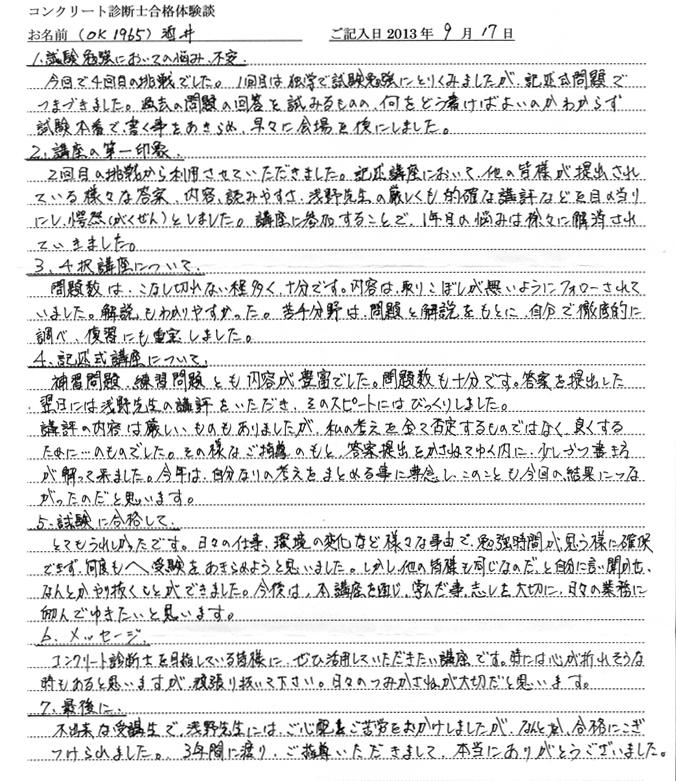 コンクリート診断士合格体験談
お名前（OK1965）酒井　ご記入日2013年9月17日
1.試験勉強においての悩み、不安.
今回で4回目の挑戦でした。1回目は独学で試験勉強にとりくみましたが、記述式問題で
つまづきました。過去の問題の回答を試みるものの、何をどう書けばよいのかわからず
試験本番で、書く事をあきらめ、早々に会場を後にしました。
2.講座の第一印象.
2回目の挑戦から利用させていただきました。記述講座において、他の皆様が提出され
ている様々な答案、内容、読みやすさ、浅野先生の厳しくも的確な講評などを目の当り
にし、愕然（がくぜん）としました。講座に参加することで、1年目の悩みは徐々に解消され
ていきました。
3.4択講座について.
問題数は、こなし切れない程多く、十分です。内容は、取りこぼしが無いようにフォローされて
いました。解説もわかりやすかった。苦手分野は、問題と解説をもとに、自分で徹底的に
調べ、復習にも重宝しました。
4.記述式講座について.
補習問題、練習問題とも内容が豊富でした。問題数も十分です。答案を提出した
翌日には浅野先生の講評をいただき、そのスピードにはびっくりしました。
講評の内容は厳しいものもありましたが、私の考えを全て否定するものではなく、良くする
ために…のものでした。その様なご指導のもと、答案提出をかさねてゆく内に、少しづつ書き方
が解って来ました。今年は、自分なりの考えをまとめる事に専念し、このことも今回の結果につな
がったのだと思います。
5.試験に合格して.
とてもうれしかったです。日々の仕事、環境の変化など様々な事由で、勉強時間が思う様に確保
できず、何度も受験をあきらめようと思いました。しかし、他の皆様も同じなのだと自分に言い聞かせ、
なんとかやり抜くことができました。今後は、本講座を通じ、学んだ事、志しを大切に、日々の業務に
励んでゆきたいと思います。
6.メッセージ.
コンクリート診断士を目指している皆様に、ぜひ活用していただきたい講座です。時には心が折れそうな
時もあると思いますが、頑張り抜いて下さい。日々のつみかさねが大切だと思います。
7.最後に.
不出来な受講生で、浅野先生には、ご心配とご苦労をおかけしましたが、なんとか、合格にこぎ
つけられました。3年間に渡り、ご指導いただきまして、本当にありがとうございました。